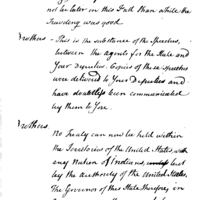 not be later in this Fall than while the
Traveling was good
Brothers – This is the substance of the speeches,
between the agents for the State and
Your Deputies. Copies of these speeches
were delivered to Your Deputies and
have doubtless been communicated
by them to You.
Brothers.
No Treaty can now be held within
the Territories of the United States, with
any Nation of Indians, but
by the authority of the United States.
The Governor of this State therefore, in